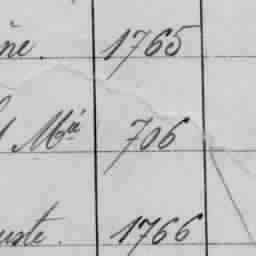 ne. 1765
Mia 706
uste. 1766